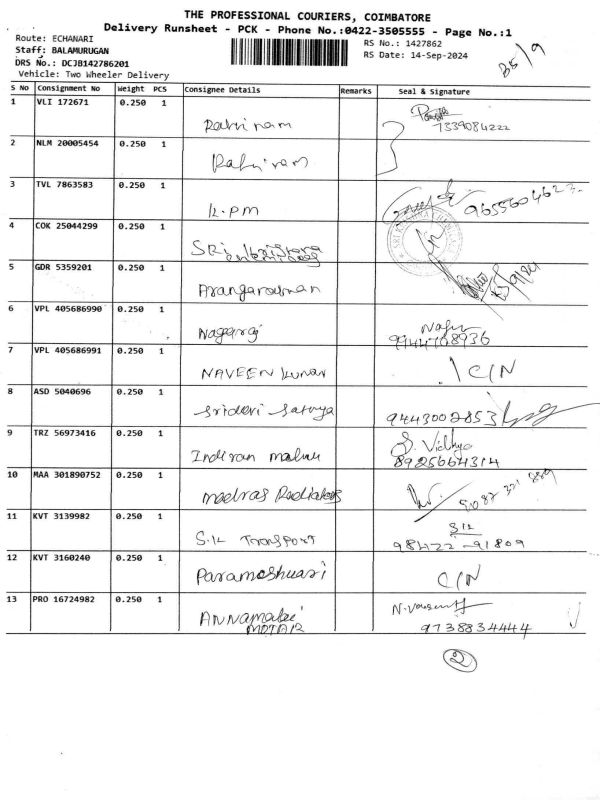 THE PROFESSIONAL COURIERS, COIMBATORE
Delivery Runsheet - PCK - Phone No.:0422-3505555 - Page No.:1
Route: ECHANARI
RS No.: 1427862
Staff: BALAMURUGAN
RS Date: 14-Sep-2024
DRS No.: DCJB142786201
Vehicle: Two Wheeler Delivery
S No Consignment No Weight PCS Consignee Details Remarks Seal & Signature
1 VLI 172671 0.250 1
7339084222
2 NLM 20005454 0.250 1
3 TVL 7863583 0.250 1
K.PM 9655604623
4 COK 25044299 0.250 1
SRi
5 GDR 5359201 0.250 1
6 VPL 405686990 0.250 1
Nagaraj 9944708936
7 VPL 405686991 0.250 1
NAVEEN KUMAR C/N
8 ASD 5040696 0.250 1
Sridevi Sathya 9443002853
9 TRZ 56973416 0.250 1
S. Vidhya
Indiran 8925664314
10 MAA 301890752 0.250 1
madras Radiators 9087 321 889
11 KVT 3139982 0.250 1
S.K
S.K Transport 98422-91809
12 KVT 3160240 0.250 1
Parameshwari C/N
13 PRO 16724982 0.250 1
ANNAMalai
MOTAR 9738834444
2